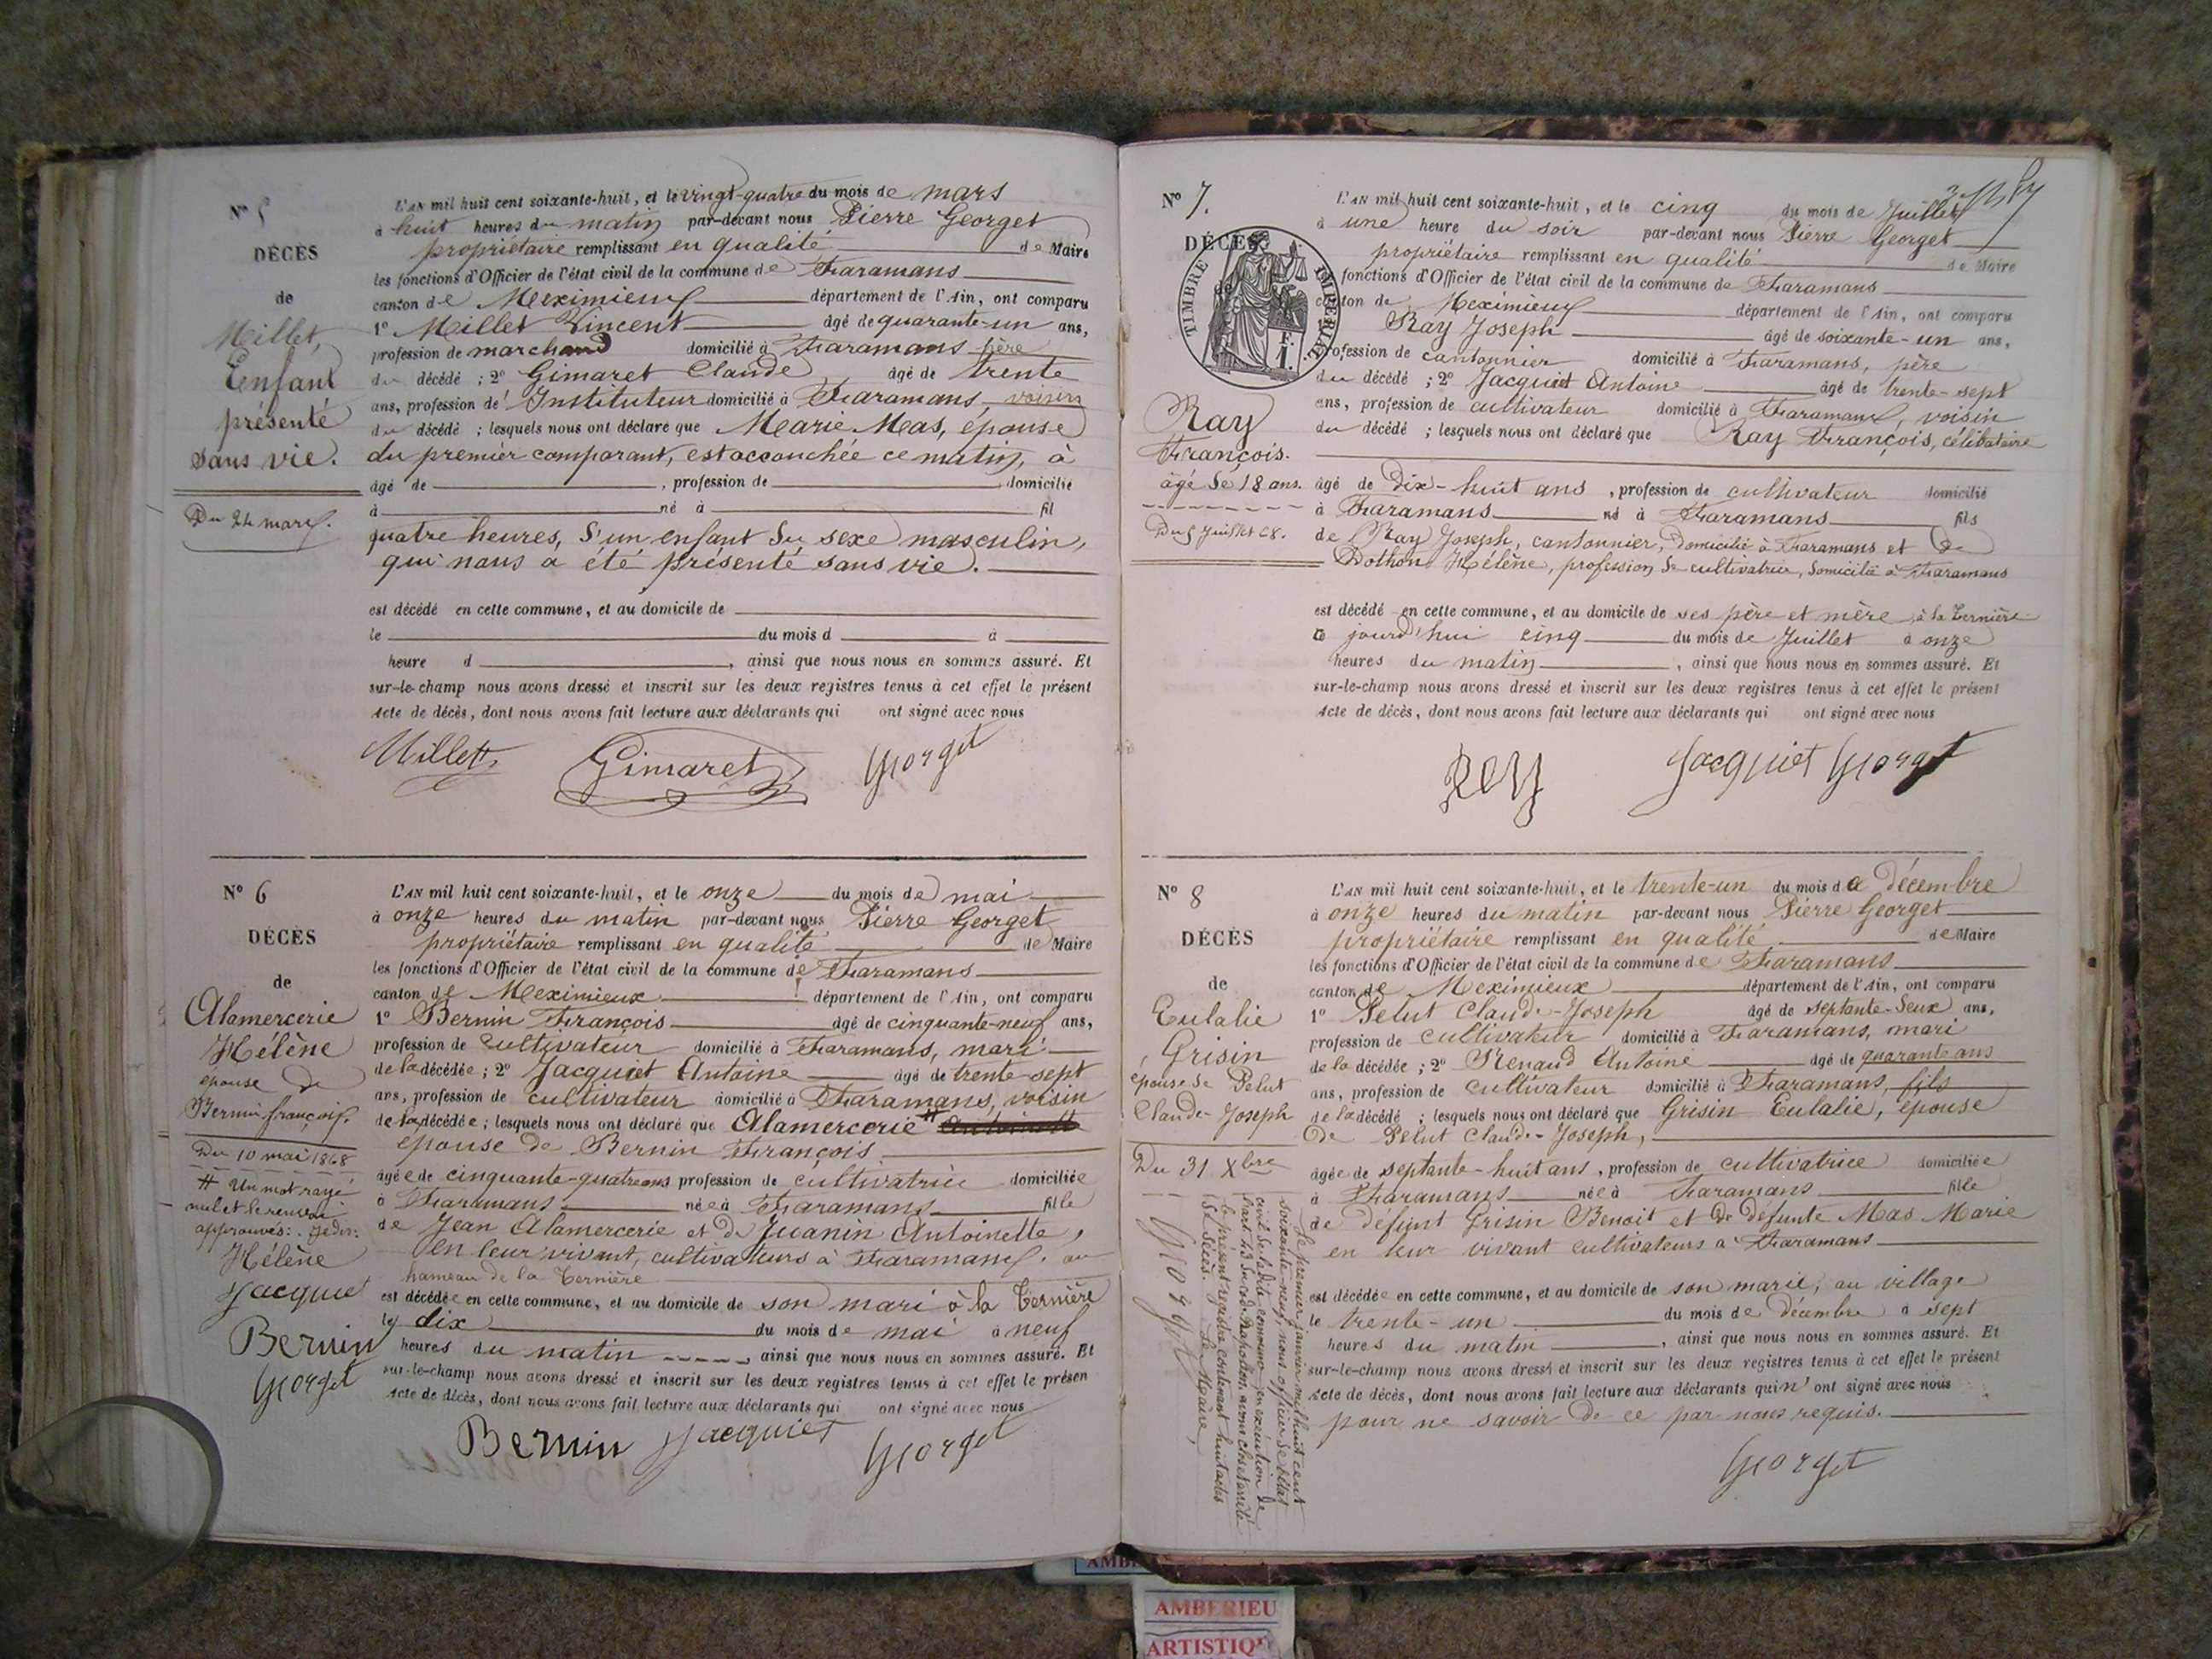 N° 5
DÉCÈS
de
Millet,
Enfant
présenté
sans vie.
Du 24 mars.
L'AN mil huit cent soixante-huit, et le vingt-quatre du mois de mars
à huit heures du matin par-devant nous Pierre Georget
propriétaire remplissant en qualité de Maire
les fonctions d'Officier de l'état civil de la commune de Faramans
canton de Meximieux département de l'Ain, ont comparu
1° Millet Vincent âgé de quarante-un ans,
profession de marchand domicilié à Faramans père
du décédé ; 2° Gimaret Claude âgé de trente
ans, profession de Instituteur domicilié à Faramans, voisin
du décédé ; lesquels nous ont déclaré que Marie Mas, épouse
du premier comparant, est accouchée ce matin, à
âgé de , profession de domicilié
à né à fil
quatre heures, d'un enfant du sexe masculin,
qui nous a été présenté sans vie.
est décédé en cette commune, et au domicile de
le du mois d à
heure d , ainsi que nous nous en sommes assuré. Et
sur-le-champ nous avons dressé et inscrit sur les deux registres tenus à cet effet le présent
acte de décès, dont nous avons fait lecture aux déclarants qui ont signé avec nous
Millet Gimaret Georget
N° 6
DÉCÈS
de
Alamercerie
Hélène
epouse de
Bernin françois.
Du 10 mai 1868
# Un mot rayé
nul et le renvoi
approuvés :
Hélène
Jacquiet
Bernin
Georget
L'AN mil huit cent soixante-huit, et le onze du mois de mai
à onze heures du matin par-devant nous Pierre Georget
propriétaire remplissant en qualité de Maire
les fonctions d'Officier de l'état civil de la commune de Faramans
canton de Meximieux département de l'Ain, ont comparu
1° Bernin François âgé de cinquante-neuf ans,
profession de cultivateur domicilié à Faramans, mari
de la décédée ; 2° Jacquiet Antoine âgé de trente-sept
ans, profession de cultivateur domicilié à Faramans, voisin
de la décédée ; lesquels nous ont déclaré que Alamercerie #
epouse de Bernin François
âgée de cinquante-quatre ans profession de cultivatrice domiciliée
à Faramans née à Faramans fille
de Jean Alamercerie et de Juanin Antoinette,
en leur vivant, cultivateurs à Faramans. au
hameau de la Ternière
est décédée en cette commune, et au domicile de son mari à la Ternière
le dix du mois de mai à neuf
heures du matin , ainsi que nous nous en sommes assuré. Et
sur-le-champ nous avons dressé et inscrit sur les deux registres tenus à cet effet le présen
acte de décès, dont nous avons fait lecture aux déclarants qui ont signé avec nous
Bernin Jacquiet Georget
N° 7.
DÉCÈS
de
TIMBRE IMPÉRIAL
Ray
François.
âgé de 18 ans.
Du 5 Juillet 68.
L'AN mil huit cent soixante-huit, et le cinq du mois de Juillet
à une heure du soir par-devant nous Pierre Georget
propriétaire remplissant en qualité de Maire
fonctions d'Officier de l'état civil de la commune de Faramans
canton de Meximieux département de l'Ain, ont comparu
Ray Joseph âgé de soixante-un ans,
profession de cantonnier domicilié à Faramans, père
du décédé ; 2° Jacquiet Antoine âgé de trente-sept
ans, profession de cultivateur domicilié à Faramans, voisin
du décédé ; lesquels nous ont déclaré que Ray François, célibataire
âgé de Dix-huit ans , profession de cultivateur domicilié
à Faramans né à Faramans fils
de Ray Joseph, cantonnier, domicilié à Faramans et de
Dothon Hélène, profession de cultivatrice, domicilié à Faramans
est décédé en cette commune, et au domicile de ses père et mère à la Ternière
ce jourd'hui cinq du mois de Juillet à onze
heures du matin , ainsi que nous nous en sommes assuré. Et
sur-le-champ nous avons dressé et inscrit sur les deux registres tenus à cet effet le présent
acte de décès, dont nous avons fait lecture aux déclarants qui ont signé avec nous
Rey Jacquiet Georget
N° 8
DÉCÈS
de
Eulalie
Grisin
épouse de Pelut
Claude-Joseph
Du 31 Xbre
L'AN mil huit cent soixante-huit, et le trente-un du mois de décembre
à onze heures du matin par-devant nous Pierre Georget
propriétaire remplissant en qualité de Maire
les fonctions d'Officier de l'état civil de la commune de Faramans
canton de Meximieux département de l'Ain, ont comparu
1° Pelut Claude-Joseph âgé de septante-deux ans,
profession de cultivateur domicilié à Faramans, mari
de la décédée ; 2° Renaud Antoine âgé de quarante ans
ans, profession de cultivateur domicilié à Faramans, fils
de la décédé ; lesquels nous ont déclaré que Grisin Eulalie, épouse
de Pelut Claude-Joseph,
âgée de septante-huit ans , profession de cultivatrice domiciliée
à Faramans née à Faramans fille
de défunt Grisin Benoit et de defunte Mas Marie
en leur vivant cultivateurs à Faramans
est décédée en cette commune, et au domicile de son marie, au village
le trente-un du mois de décembre à sept
heures du matin , ainsi que nous nous en sommes assuré. Et
sur-le-champ nous avons dressé et inscrit sur les deux registres tenus à cet effet le présent
acte de décès, dont nous avons fait lecture aux déclarants qui n'ont signé avec nous
pour ne savoir de ce par nous requis.
Georget
Le premier janvier mil huit cent
soixante-neuf, nous officier de l'état
civil de la dite commune, en exécution de
l'art. 43 du code Napoléon avons clos et arrêté
le présent registre contenant huit actes
de décès. Le Maire,
Georget
AMBERIEU
ARTISTIQU